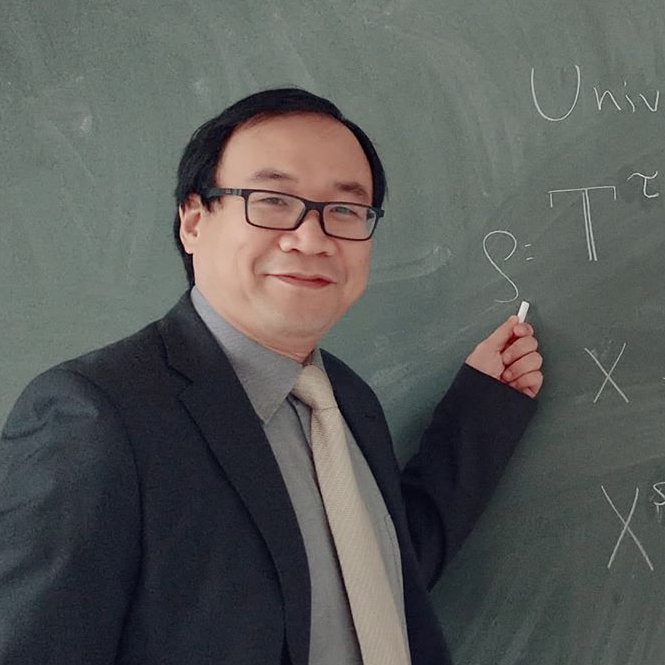 Univ
S: T^τ
X
X^s